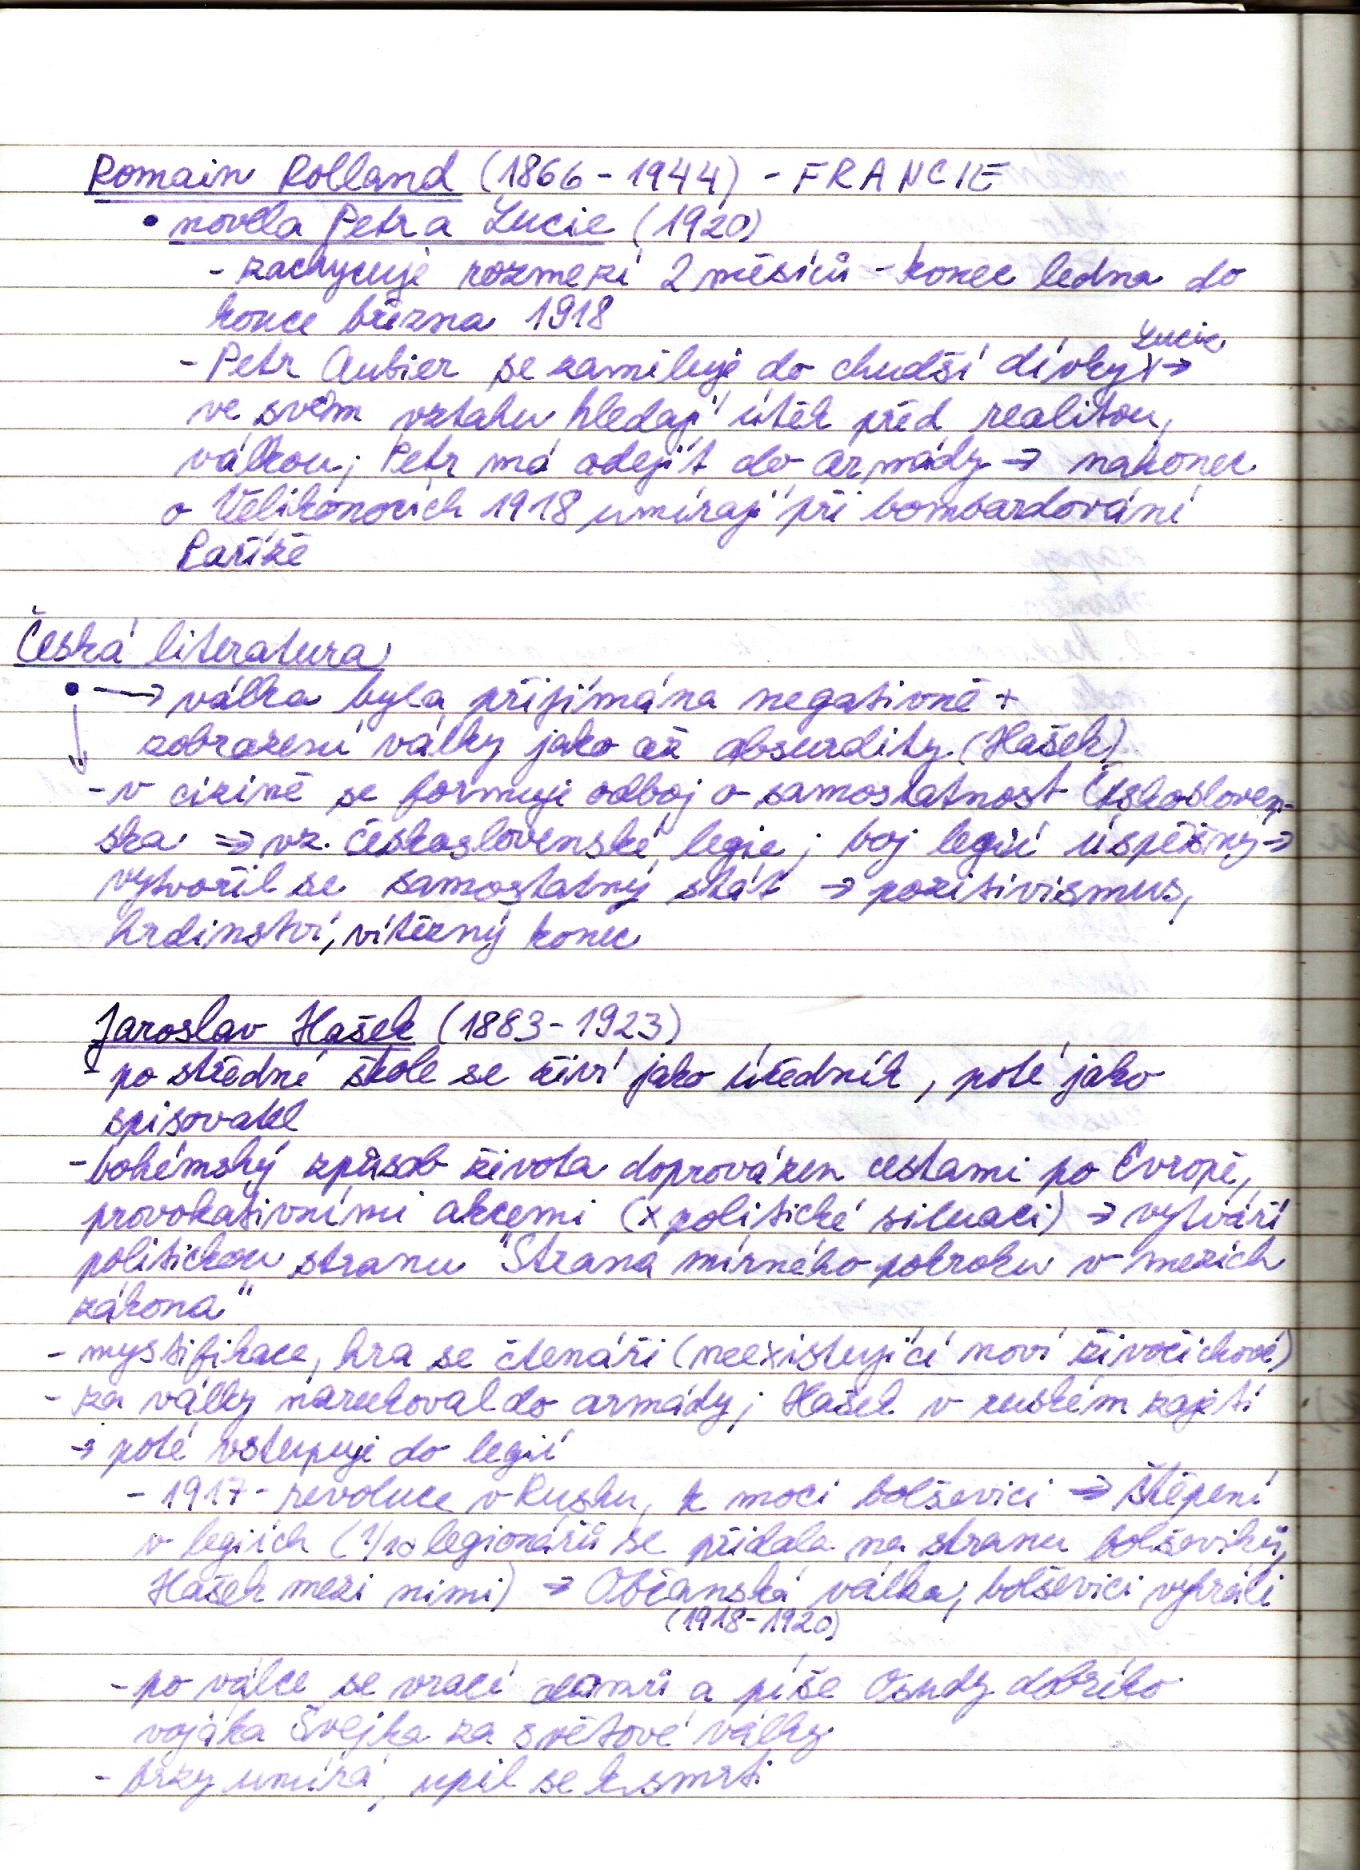 Romain Rolland (1866-1944) - FRANCIE
• novela Petr a Lucie (1920)
- zachycuje rozmezí 2 měsíců - konec ledna do
konce března 1918
Lucie
- Petr Aubier se zamiluje do chudší dívky →
ve svém vztahu hledají útěk před realitou,
válkou; Petr má odejít do armády → nakonec
o Velikonocích 1918 umírají při bombardování
Paříže
Česká literatura
• → válka byla přijímána negativně +
zobrazení války jako až absurdity (Hašek)
- v cizině se formuje odboj o samostatnost Českosloven-
ska ⇒ vz. československé legie; boj legií úspěšný →
vytvořil se samostatný stát → pozitivismus,
hrdinství, vítězný konec
Jaroslav Hašek (1883-1923)
- po střední škole se živí jako úředník, poté jako
spisovatel
- bohémský způsob života doprovázen cestami po Evropě,
provokativními akcemi (x politické situaci) → vytváří
politickou stranu "Strana mírného pokroku v mezích
zákona"
- mystifikace, hra se čtenáři (neexistující noví živočichové)
- za války narukoval do armády; Hašek v ruském zajetí
→ poté vstupuje do legií
- 1917 - revoluce v Rusku, k moci bolševici ⇒ štěpení
v legiích (1/10 legionářů se přidala na stranu bolševiků,
Hašek mezi nimi) → Občanská válka, bolševici vyhráli
(1918-1920)
- po válce se vrací domů a píše Osudy dobrého
vojáka Švejka za světové války
- brzy umírá, upil se k smrti